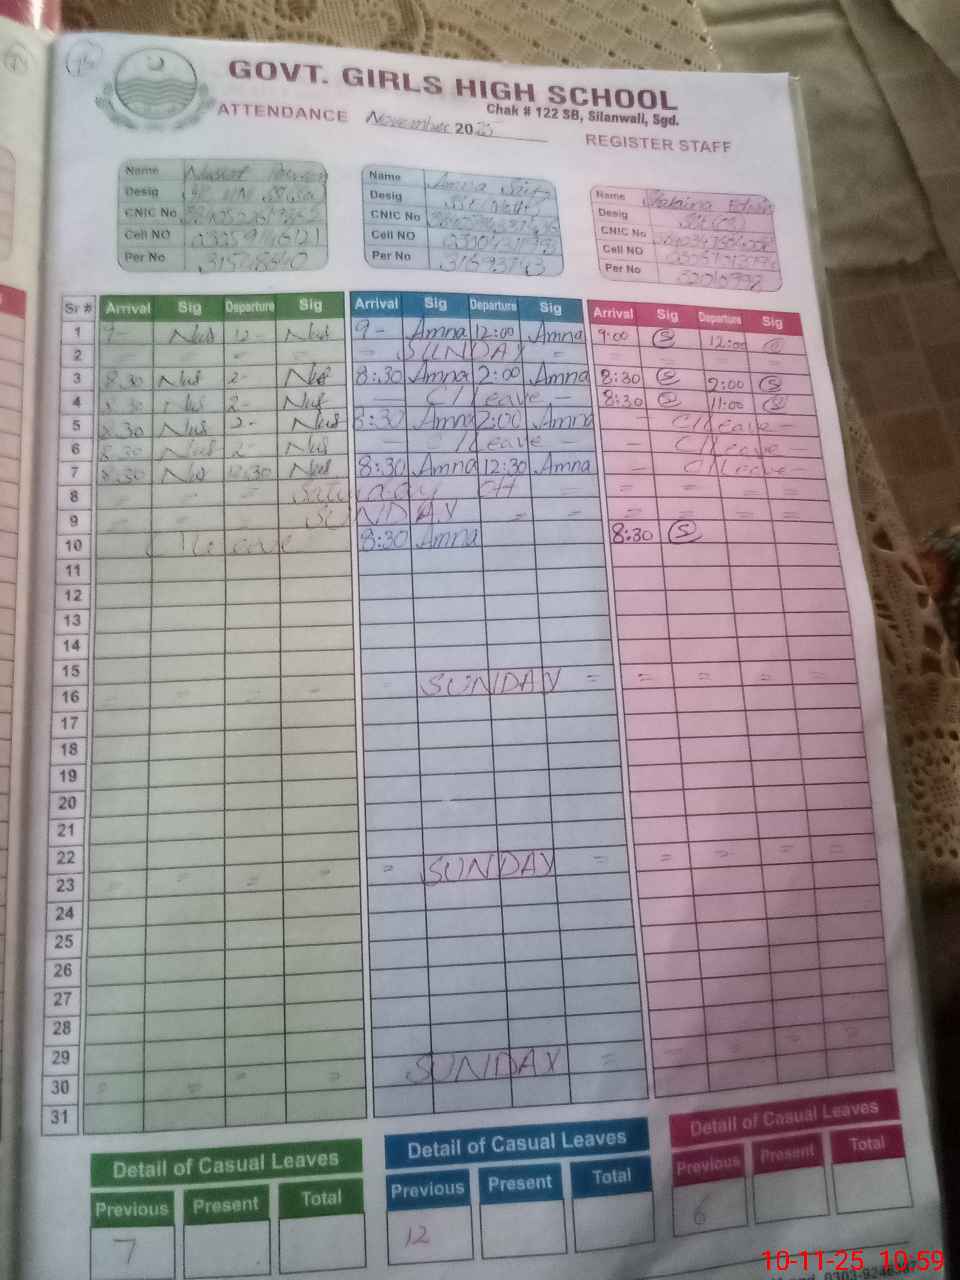 GOVT. GIRLS HIGH SCHOOL
Chak # 122 SB, Silanwali, Sgd.
ATTENDANCE November 2025 REGISTER STAFF
Name Nusrat
Desig
CNIC No
Cell NO
Per No
Name Amna
Desig
CNIC No
Cell NO
Per No 31693743
Name
Desig
CNIC No
Cell NO
Per No
Sr # Arrival Sig Departure Sig Arrival Sig Departure Sig Arrival Sig Departure Sig
1 9- Nus 12- Nus 9- Amna 12:00 Amna 9:00 S 12:00 S
2 = = = = - SUNDAY = = = = =
3 8:30 Nus 2- Nus 8:30 Amna 2:00 Amna 8:30 S 2:00 S
4 8:30 Nus 2- Nus - C/Leave - 8:30 S 11:00 S
5 8:30 Nus 2- Nus 8:30 Amna 2:00 Amna - C/Leave -
6 8:30 Nus 2- Nus - C/Leave - - C/Leave -
7 8:30 Nus 12:30 Nus 8:30 Amna 12:30 Amna - C/Leave -
8 = = = Saturday Off = = = = = =
9 = = = SUNDAY = = = = = =
10 C/Leave 8:30 Amna 8:30 S
11
12
13
14
15
16 = = = = - SUNDAY = = = = =
17
18
19
20
21
22
23 = = = = = SUNDAY = = = = =
24
25
26
27
28
29
30 = = = = SUNDAY = = = = =
31
Detail of Casual Leaves
Previous Present Total
7
Detail of Casual Leaves
Previous Present Total
12
Detail of Casual Leaves
Previous Present Total
6
10-11-25 10:59